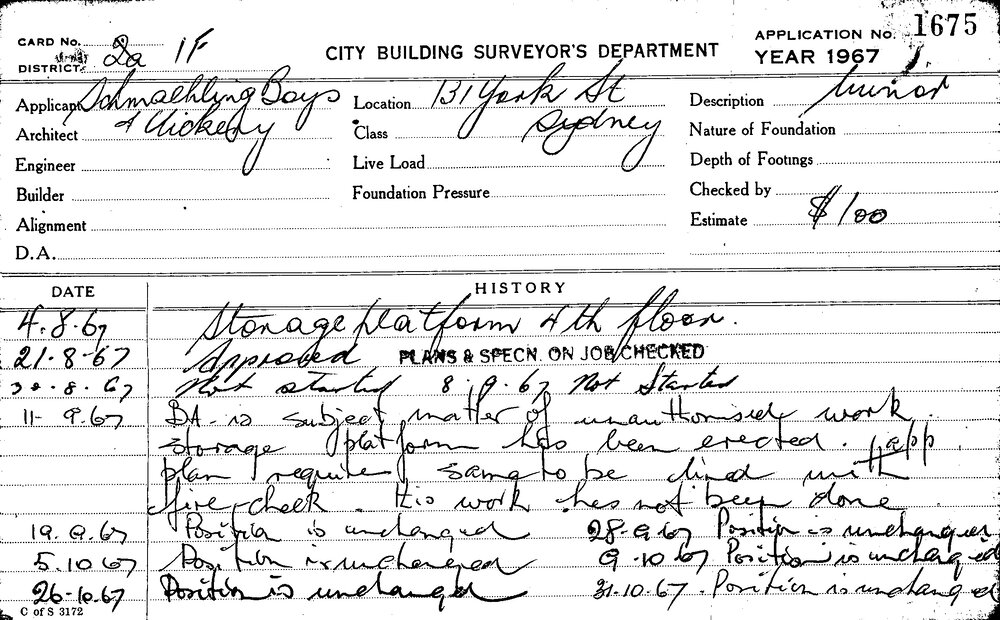 CARD No. 2a 1F
DISTRICT
CITY BUILDING SURVEYOR'S DEPARTMENT
APPLICATION No. 1675
YEAR 1967
Applicant Schmaehling Boys
& Vickery
Location 131 York St
Sydney
Description Minor
Architect
Class
Nature of Foundation
Engineer
Live Load
Depth of Footings
Builder
Foundation Pressure
Checked by
Alignment
Estimate $100
D.A.
DATE HISTORY
4.8.67 Storage platform 4th floor.
21.8-67 Approved PLANS & SPECN. ON JOB CHECKED
30.8.67 Not started 8.9.67 Not Started
11-9.67 BA. is subject matter of unauthorised work.
storage platform has been erected. app
plan requires same to be lined with
fire check. This work has not been done.
19.9.67 Position is unchanged 28-9.67 Position is unchanged
5.10.67 Position is unchanged 9.10.67 Position is unchanged
26.10.67 Position is unchanged 31.10.67. Position is unchanged
C of S 3172